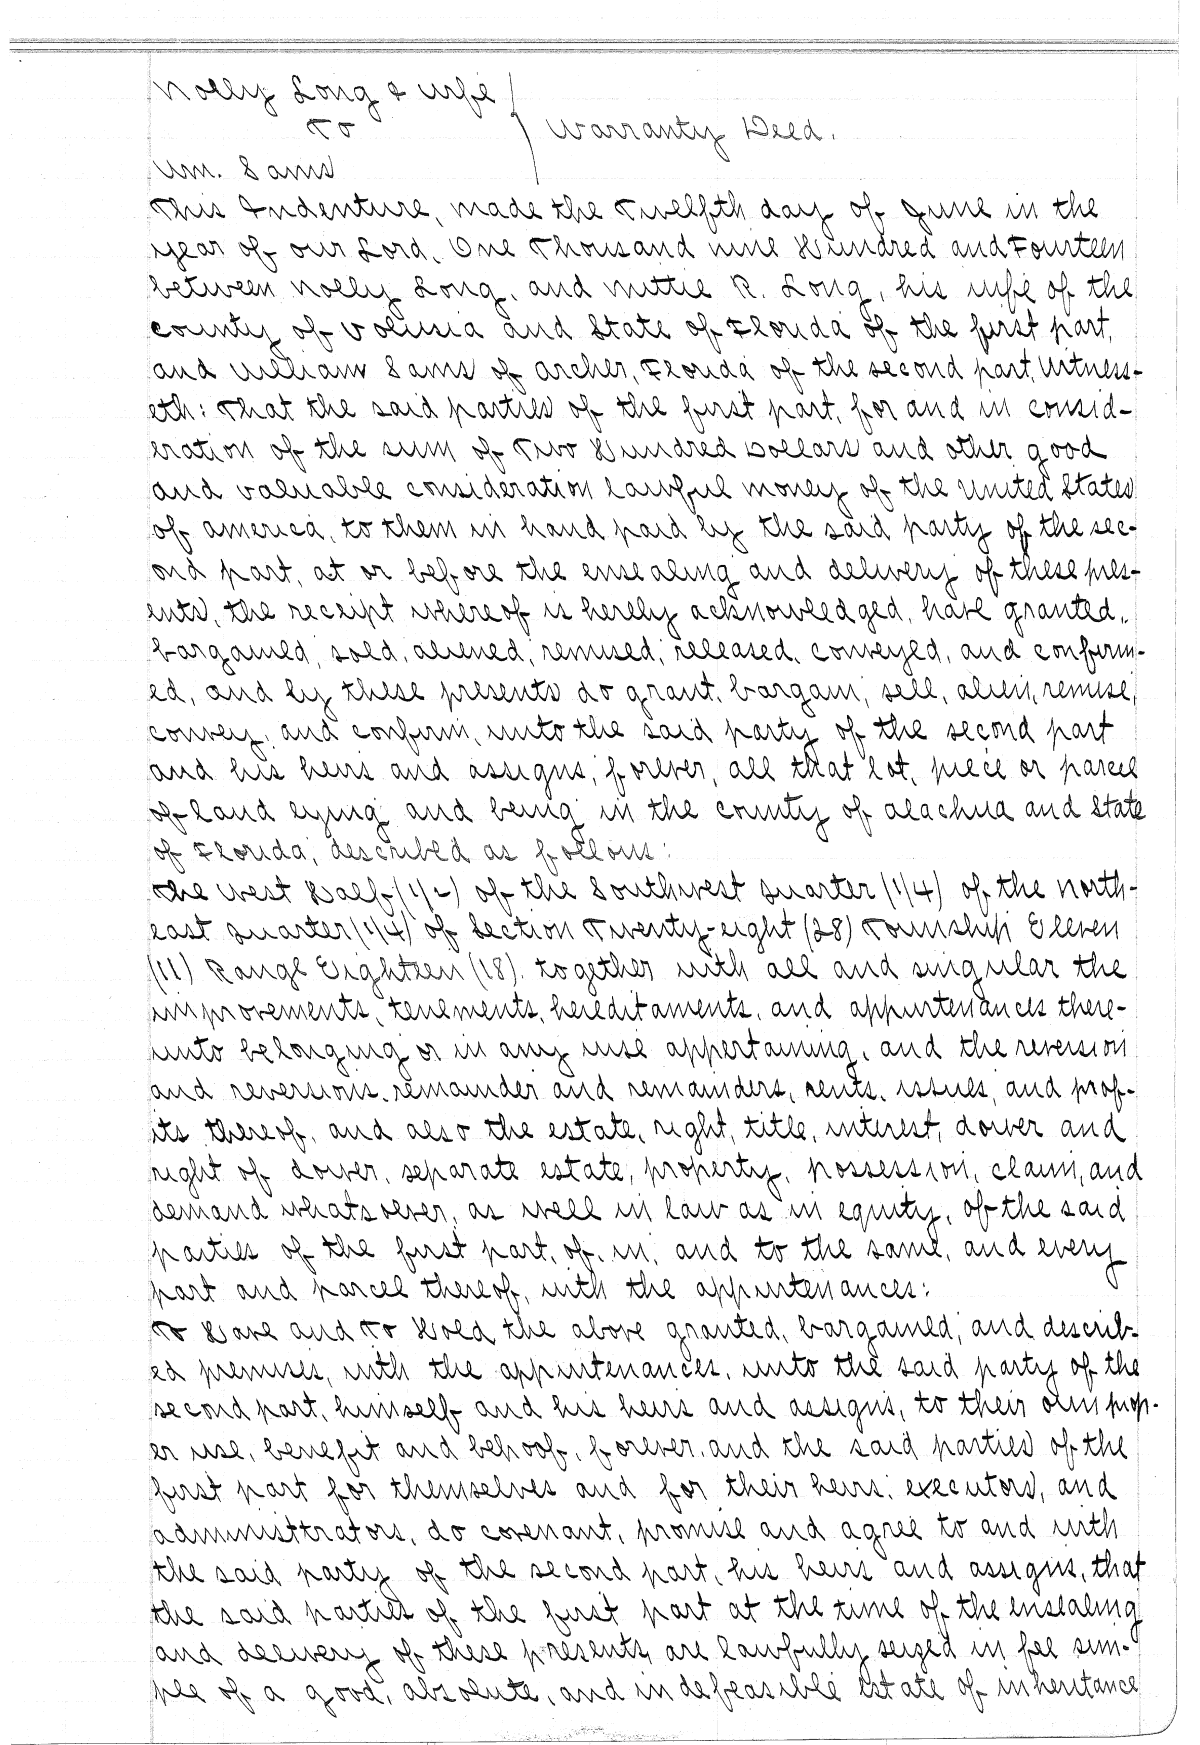 Nolly Long & wife
To
Warranty Deed.
Wm. Sams
This Indenture, made the Twelfth day of June in the
year of our Lord, One Thousand nine Hundred and Fourteen
between Nolly Long, and Mittie R. Long, his wife of the
county of Volusia and State of Florida of the first part,
and William Sams of Archer, Florida of the second part, Witness-
eth: That the said parties of the first part, for and in consid-
eration of the sum of Two Hundred Dollars and other good
and valuable consideration lawful money of the United States
of America, to them in hand paid by the said party of the sec-
ond part, at or before the ensealing and delivery of these pres-
ents, the receipt whereof is hereby acknowledged, have granted,
bargained, sold, aliened, remised, released, conveyed, and confirm-
ed, and by these presents do grant, bargain, sell, alien, remise,
convey, and confirm, unto the said party of the second part
and his heirs and assigns, forever, all that lot, piece or parcel
of land lying and being in the county of Alachua and State
of Florida, described as follows:
The West Half (1/2) of the Southwest Quarter (1/4) of the North-
east Quarter (1/4) of Section Twenty-eight (28) Township Eleven
(11) Range Eighteen (18). together with all and singular the
improvements, tenements, hereditaments, and appurtenances there-
unto belonging or in any wise appertaining, and the reversion
and reversions, remainder and remainders, rents, issues, and prof-
its thereof, and also the estate, right, title, interest, dower and
right of dower, separate estate, property, possession, claim, and
demand whatsoever, as well in law as in equity, of the said
parties of the first part, of, in, and to the same, and every
part and parcel thereof, with the appurtenances:
To Have and To Hold the above granted, bargained, and describ-
ed premises, with the appurtenances, unto the said party of the
second part, himself and his heirs and assigns, to their own prop-
er use, benefit and behoof, forever, and the said parties of the
first part for themselves and for their heirs, executors, and
administrators, do covenant, promise and agree to and with
the said party of the second part, his heirs and assigns, that
the said parties of the first part at the time of the ensealing
and delivery of these presents, are lawfully seized in fee sim-
ple of a good, absolute, and indefeasible estate of inheritance